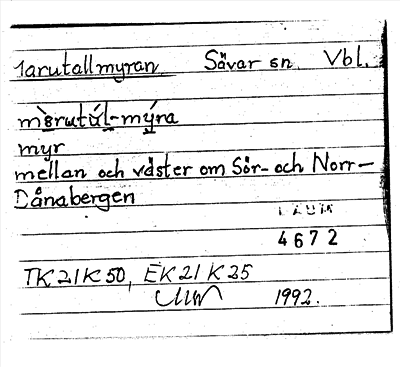 1arutallmyran Sävar sn Vbl.
mɜ̀rutúl-mýra
myr
mellan och väster om Sör- och Norr-
Dånabergen
4672
TK21K50, EK21K25
1992.